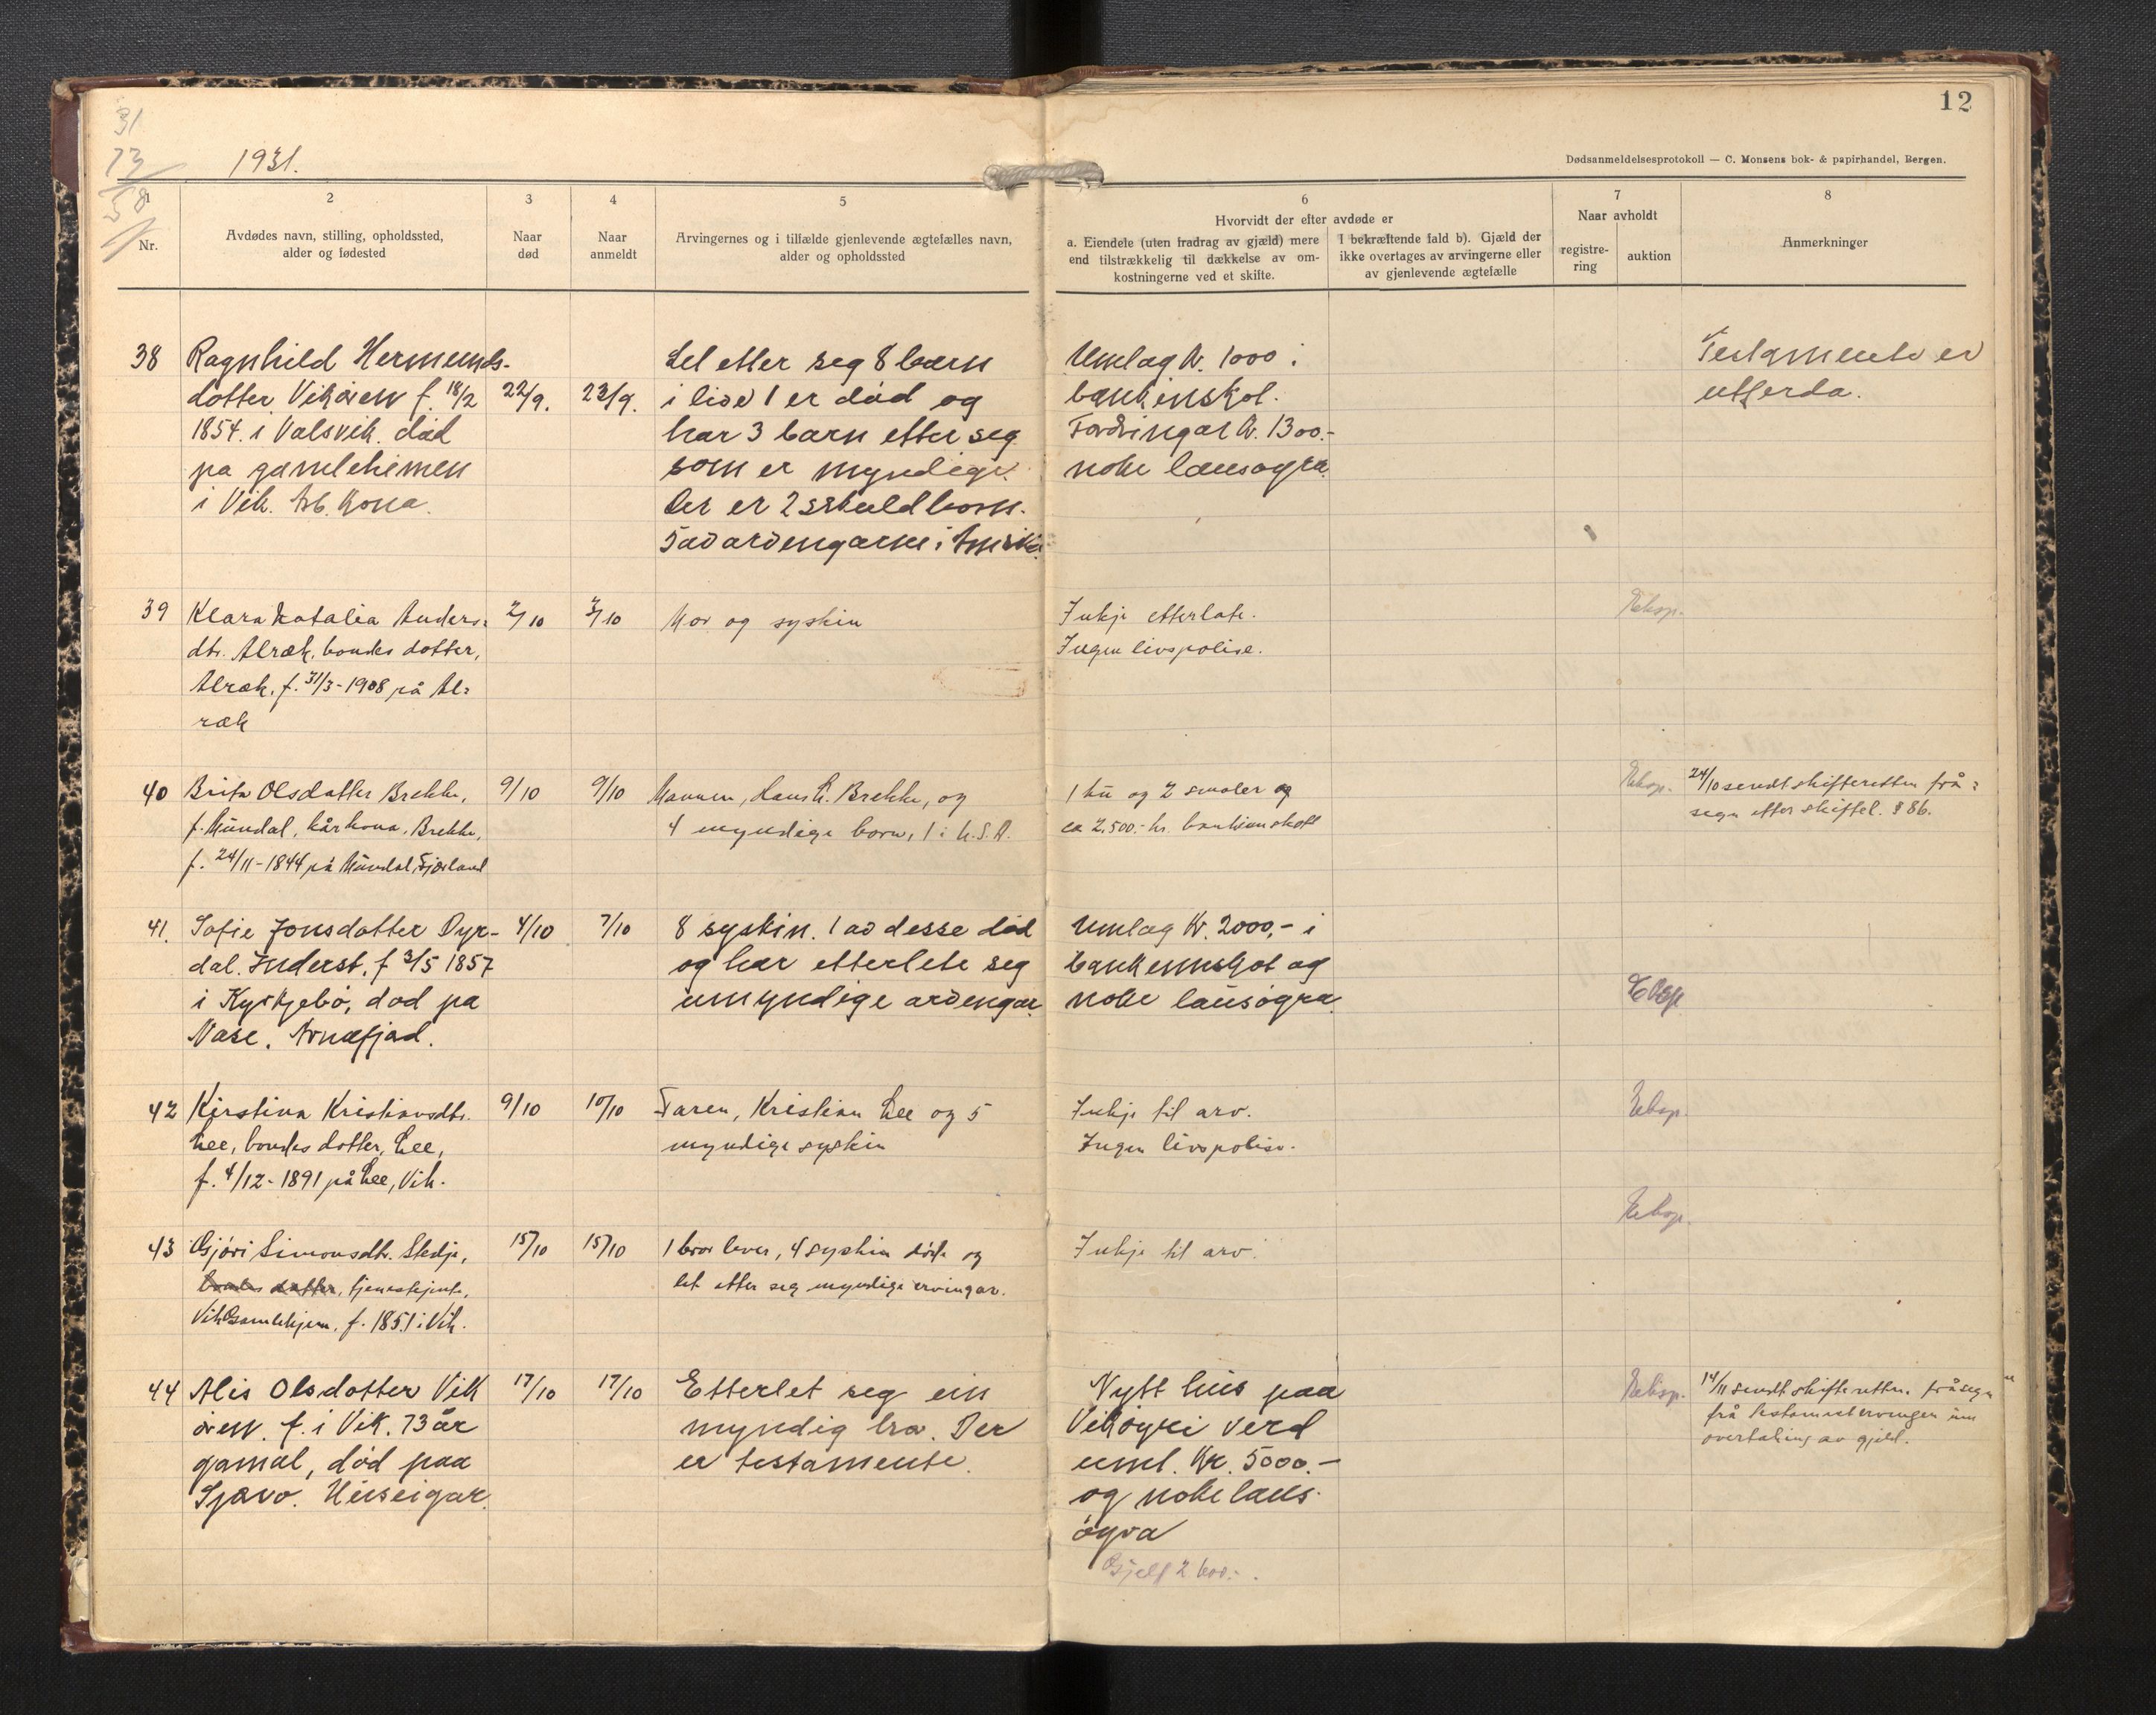 31
73
58
1931.
12
Dødsanmeldelsesprotokoll — C. Monsens bok- & papirhandel, Bergen.
1
Nr.
2
Avdødes navn, stilling, opholdssted,
alder og fødested
3
Naar
død
4
Naar
anmeldt
5
Arvingernes og i tilfælde gjenlevende ægtefælles navn,
alder og opholdssted
6
Hvorvidt der efter avdøde er
a. Eiendele (uten fradrag av gjæld) mere
end tilstrækkelig til dækkelse av om-
kostningerne ved et skifte.
I bekræftende fald b). Gjæld der
ikke overtages av arvingerne eller
av gjenlevende ægtefælle
7
Naar avholdt
registre-
ring
auktion
8
Anmerkninger
38
Ragnhild Hermunds-
dotter Vikøien f. 18/2
1854. i Valsvik. død
pa gamleheimen
i Vik. kona.
22/9.
23/9.
Let etter seg 8 barn
i live 1 er død og
har 3 barn etter seg
som er myndige.
Der er 2 barn.
5 av arvengarne i
Umlag kr. 1000 i
bankinskot.
Fordringar kr. 1300.-
noke lausøgra.
Testamente er
utferda.
39
Klara Natalia Anders-
dtr. Alræk, bondes dotter,
Alræk. f. 31/3-1908 på Al=
ræk
2/10
3/10
Mor og syskin
Inkje etterlate.
Ingen livspolise.
Eksp.
40
Brita Olsdatter Brekke,
f. Mundal, kårkona, Brekke,
f. 24/11-1844 på Mundal, Fjærland
9/10
9/10
Mannen, Hans Brekke, og
4 myndige born, 1 i U.S.A.
1 ku og 2 smaler og
ca 2.500.- kr. bankinnskott
Eksp.
24/10 sendt skifteretten frå=
segn etter skiftel. § 86.
41.
Sofie Jonsdotter Dyr-
dal. Inderst, f 3/5 1857
i Kyrkjebø, død pa
Nase. Arnafjad.
4/10
7/10
8 syskin. 1 av desse død
og har etterlete seg
umyndige arvengar.
Umlag Kr. 2000,- i
bankennskot og
noke lausøgra.
Eksp.
42
Kirstina Kristiansdtr.
Lee, bondes dotter, Lee,
f. 4/12-1891 på Lee, Vik.
9/10
10/10
Faren, Kristian Lee og 5
myndige syskin
Inkje til arv.
Ingen livspolise.
Eksp.
43
Gjöri Simonsdtr. Stedje,
bondes dotter, tjenestejente,
Vik Gamlehjem. f. 1851 i Vik.
15/10
15/10
1 bror lever, 4 syskin døde og
let etter seg myndige ervingar.
Inkje til arv.
Eksp.
44
Alis Olsdotter Vik
øren. f. i Vik. 73 år
gamal, død paa
Sjøvo. Huseigar.
17/10
17/10
Etterlet seg ein
myndig bror. Der
er testamente.
Nytt hus paa
Vikøyri verd
uml. Kr. 5000.-
og noke laus
øyra
Gjeld 2600.-.
Eksp.
14/11 sendt skifteretten fråsegn
frå testamentervingen um
overtaking av gjeld.